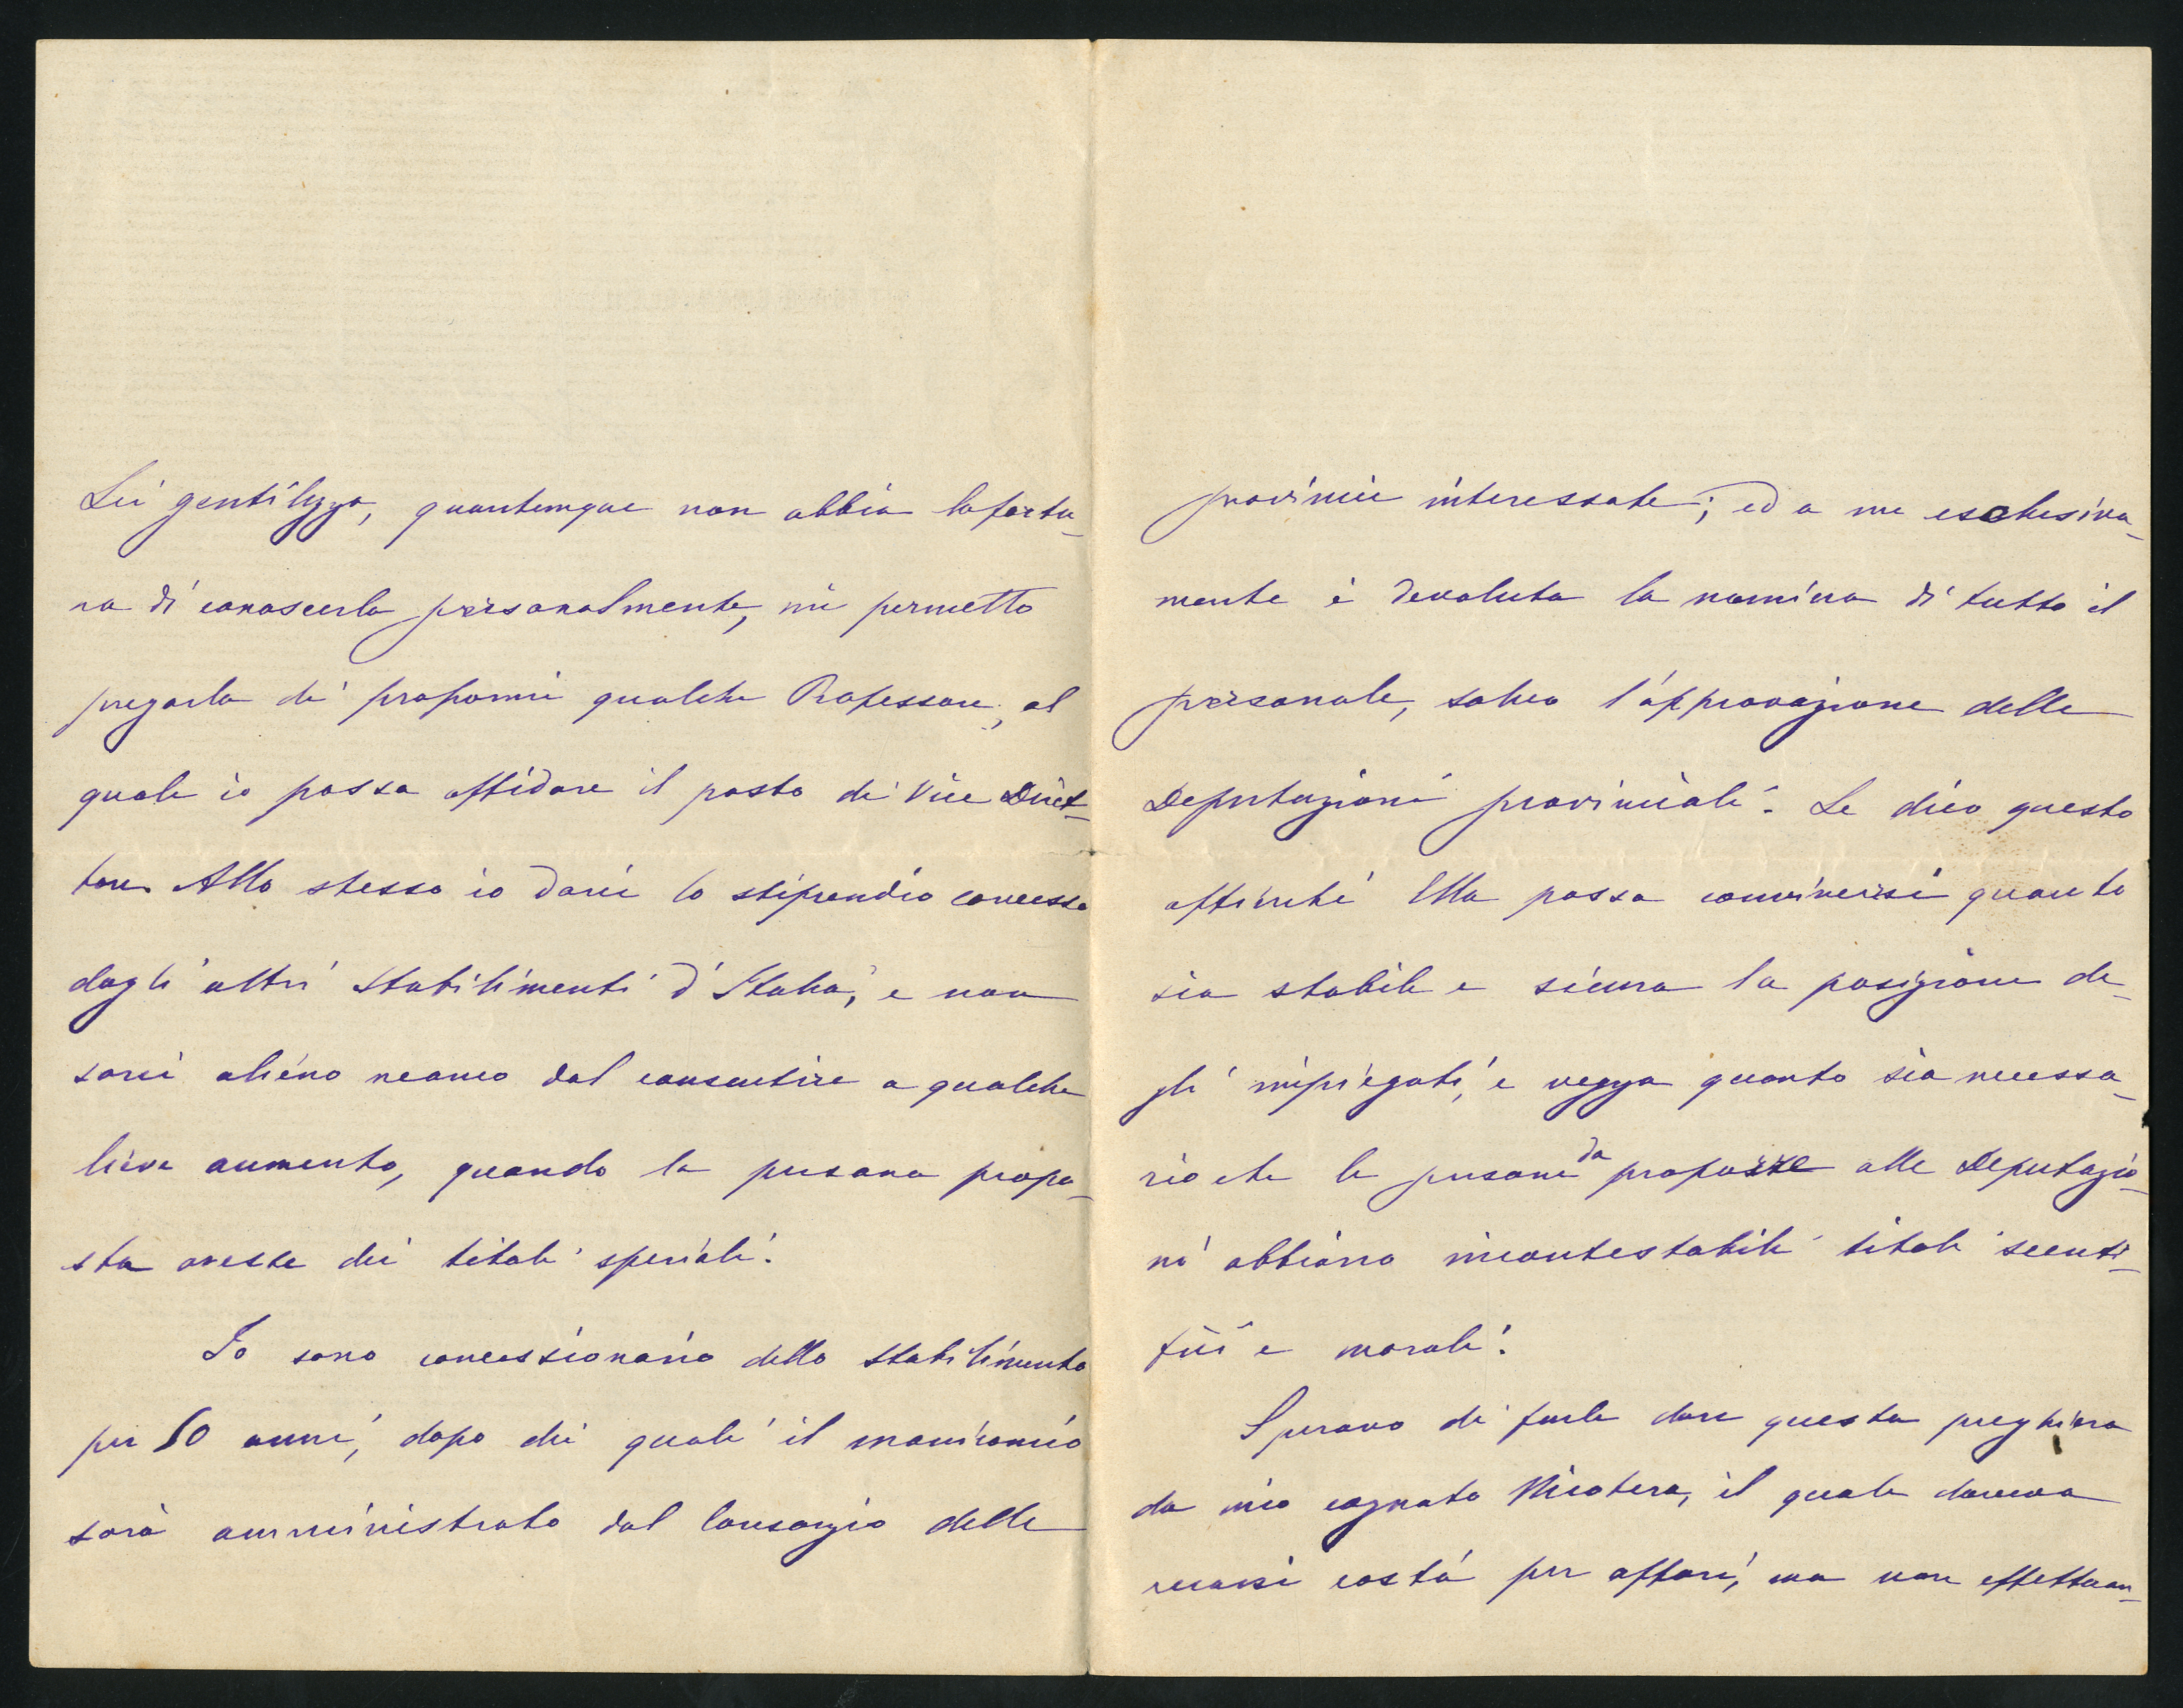 Lei gentilezza, quantunque non abbia la fortu-
na di conoscerla personalmente, mi permetto
pregarla di propormi qualche Professore, al
quale io possa affidare il posto di Vice Diret-
tore. Allo stesso io darei lo stipendio concesso
dagli altri Stabilimenti d'Italia, e non
sarei alieno neanco dal consentire a qualche
lieve aumento, quando la persona propo-
sta avesse dei titoli speciali.
Io sono concessionario dello Stabilimento
per 50 anni, dopo dei quali il manicomio
sarà amministrato dal Consorzio delle
provincie interessate; ed a me esclusiva-
mente è devoluta la nomina di tutto il
personale, salvo l'approvazione delle
Deputazioni provinciali. Le dico questo
affinché Ella possa convincersi quanto
sia stabile e sicura la posizione de-
gli impiegati, e vegga quanto sia necessa-
rio che le persone da proporre alle Deputazio-
ni abbiano incontestabili titoli scienti-
fici e morali.
Speravo di farle dare questa preghiera
da mio cognato Nicotera, il quale doveva
recarsi costà per affari, ma non effettuan-